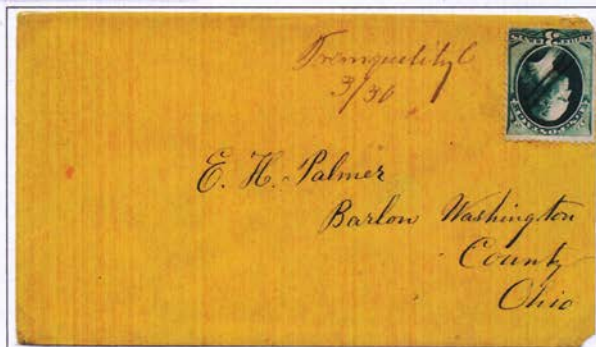 Tranquility O
3/30
E. H. Palmer
Barlow Washington
County
Ohio